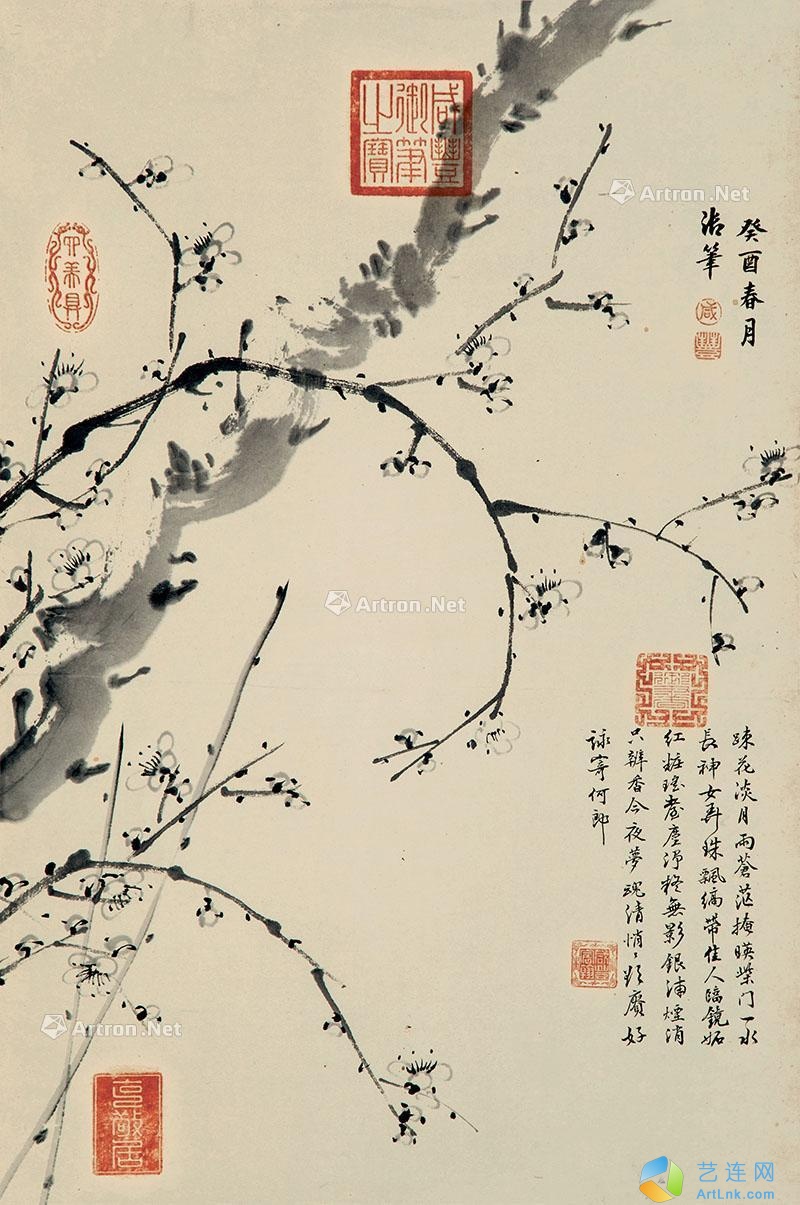 咸豐
御筆
之寶
Artron.Net
癸酉春月
筆
咸
豐
Artron.Net
Artron.Net
疎花淡月兩蒼茫掩暎柴门一水
長神女弄珠飄縞帶佳人臨鏡妬
红粧瑤臺塵淨終無影銀浦煙消
只辨香今夜夢魂清悄〻頻賡好
詠寄何郎
Artron.Net
艺连网
ArtLnk.com